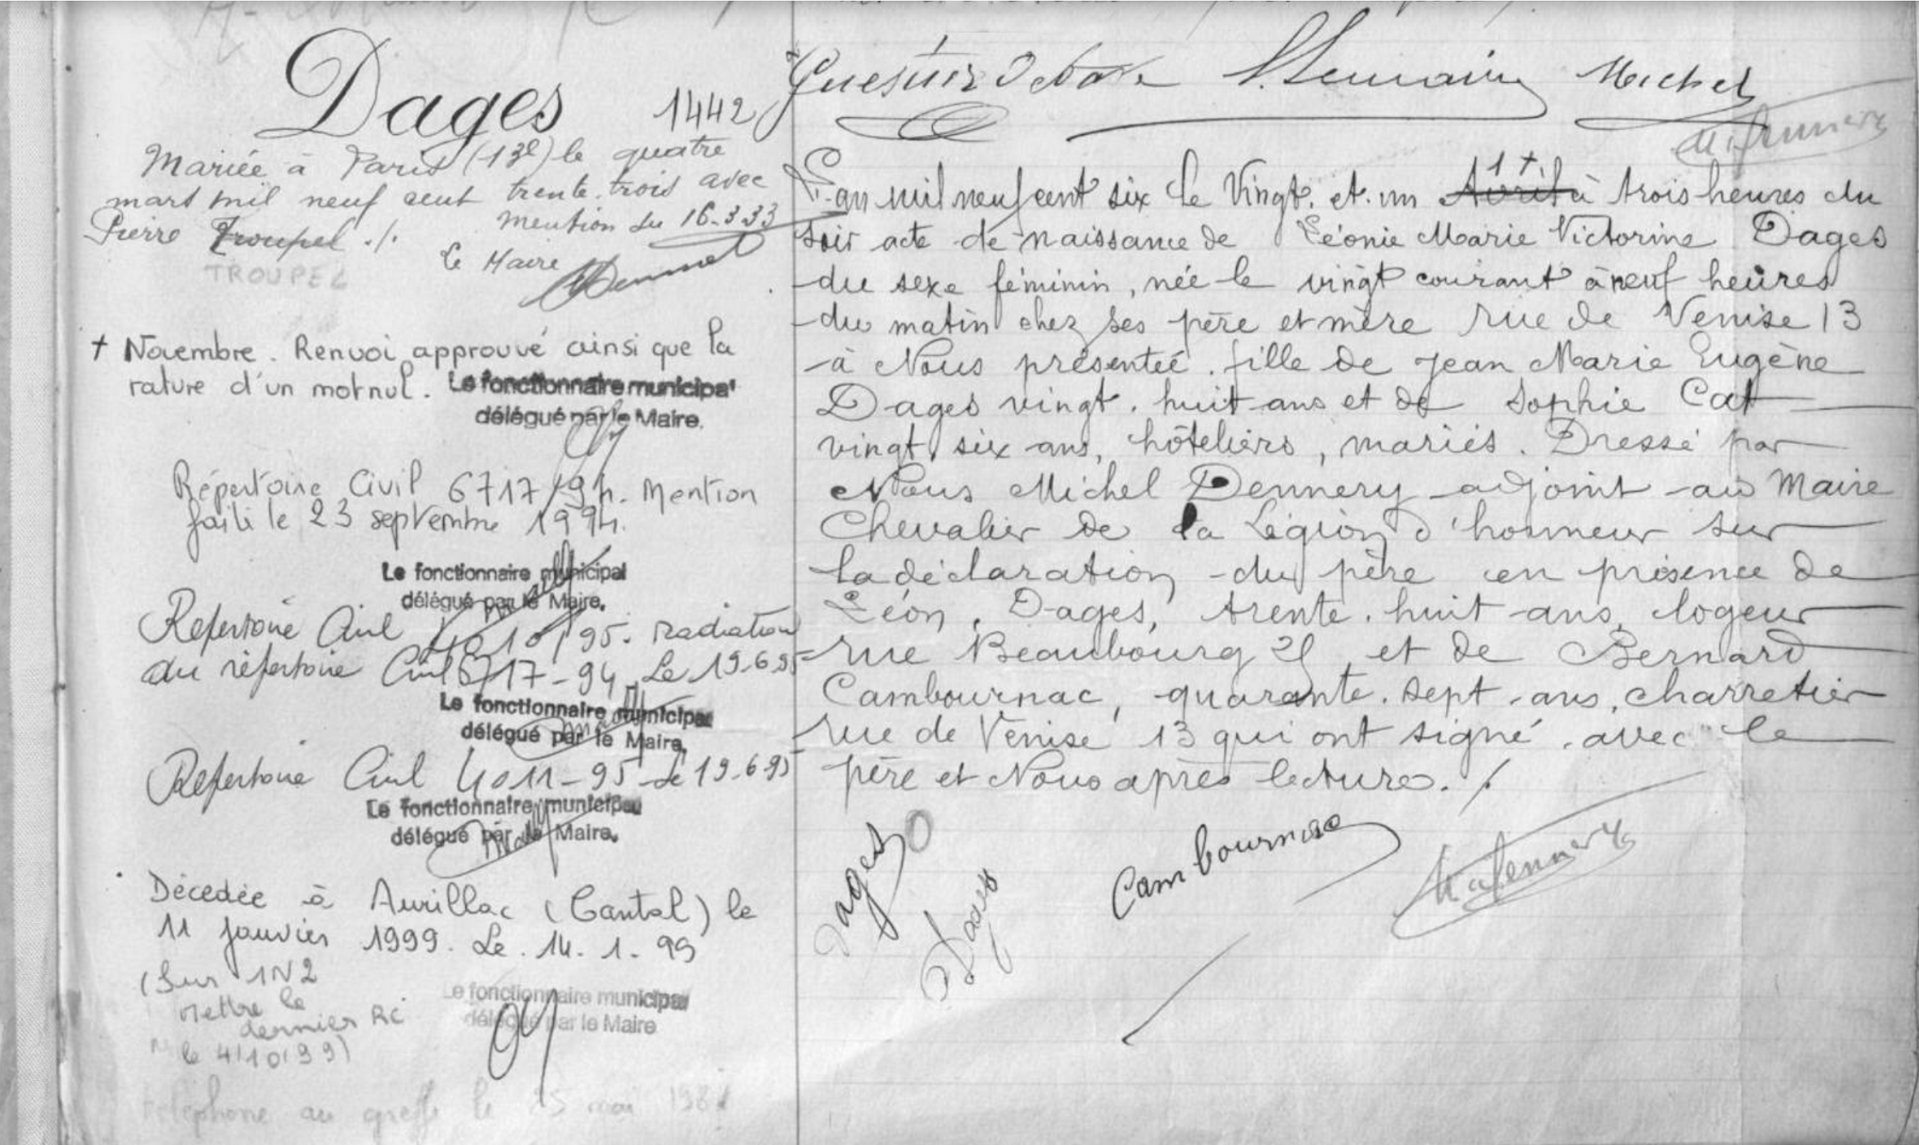 Dages 1442
Mariée à Paris (13e) le quatre
mars mil neuf cent trente trois avec
Pierre Troupel ./. mention du 16-3-33
TROUPEL
Le Maire
+ Novembre. Renvoi approuvé ainsi que la
rature d'un mot nul. Le fonctionnaire municipal
délégué par le Maire.
Répertoire Civil 6717/94. Mention
faite le 23 septembre 1994.
Le fonctionnaire municipal
délégué par le Maire.
Repertoire Civil 4010/95. radiation
du répertoire Civil 6717-94 Le 19.6.95
Le fonctionnaire municipal
délégué par le Maire.
Repertoire Civil 4011-95 le 19.6.95
Le fonctionnaire municipal
délégué par le Maire.
Décédée à Aurillac (Cantal) le
11 janvier 1999. Le. 14. 1. 99
(Sur IN2
mettre le
dernier RC
le 4/10/99)
Le fonctionnaire municipal
délégué par le Maire
téléphone au greffe le 25 mai
Michel
L'an mil neuf cent six le Vingt. et. un Avril 1+ à trois heures du
soir acte de naissance de Léonie Marie Victorine Dages
du sexe féminin, née le vingt courant à neuf heures
du matin chez ses père et mère rue de Venise 13
à Nous présentée. fille de Jean Marie Eugène
Dages vingt. huit ans et de Sophie Cat
vingt six ans, hôteliers, mariés. Dressé par
Nous Michel Dennery adjoint au Maire
Chevalier de la Légion d'honneur sur
la déclaration du père en présence de
Léon, Dages, trente. huit ans, logeur
rue Beaubourg et de Bernard
Cambournac, quarante. sept ans, charretier
rue de Venise 13 qui ont signé avec le
père et Nous après lecture. ./.
Dages
Dages
Cambournac
M. Dennery